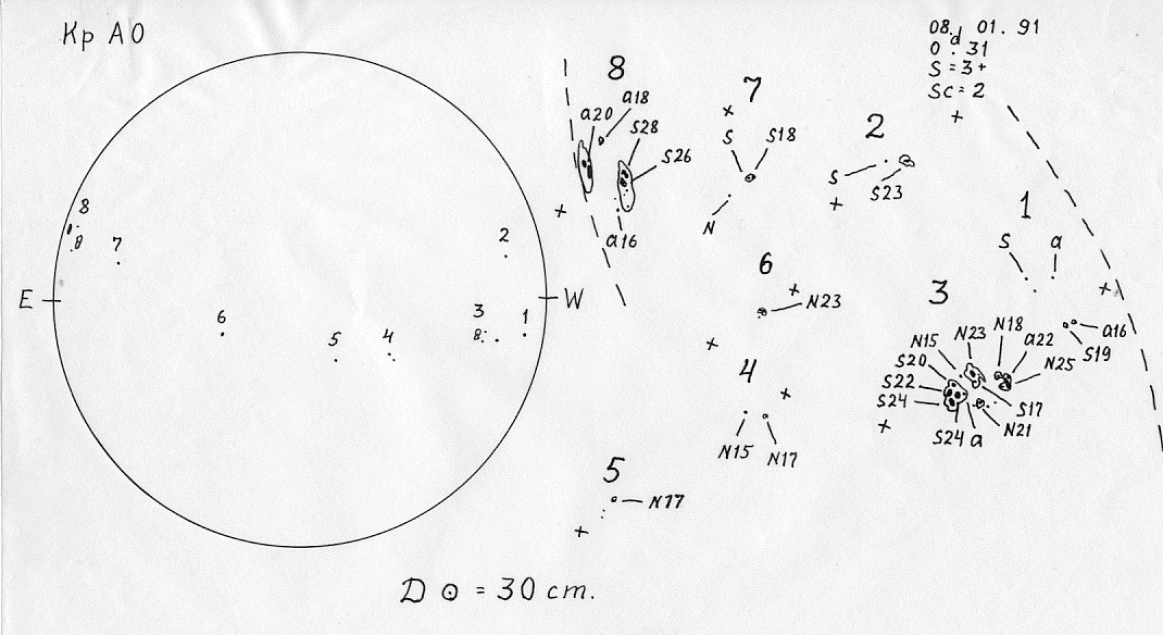 Кр АО
08. 01. 91
0 d. 31
S = 3+
Sc = 2
8
a20
a18
S28
S26
a16
7
S
S18
N
2
S
S23
1
S
a
a16
S19
6
N23
3
N15
N23
N18
a22
N25
S20
S22
S24
S17
N21
S24
a
4
N15
N17
5
N17
8
8
7
2
E
W
6
5
4
3
8
1
D ⊙ = 30 cm.